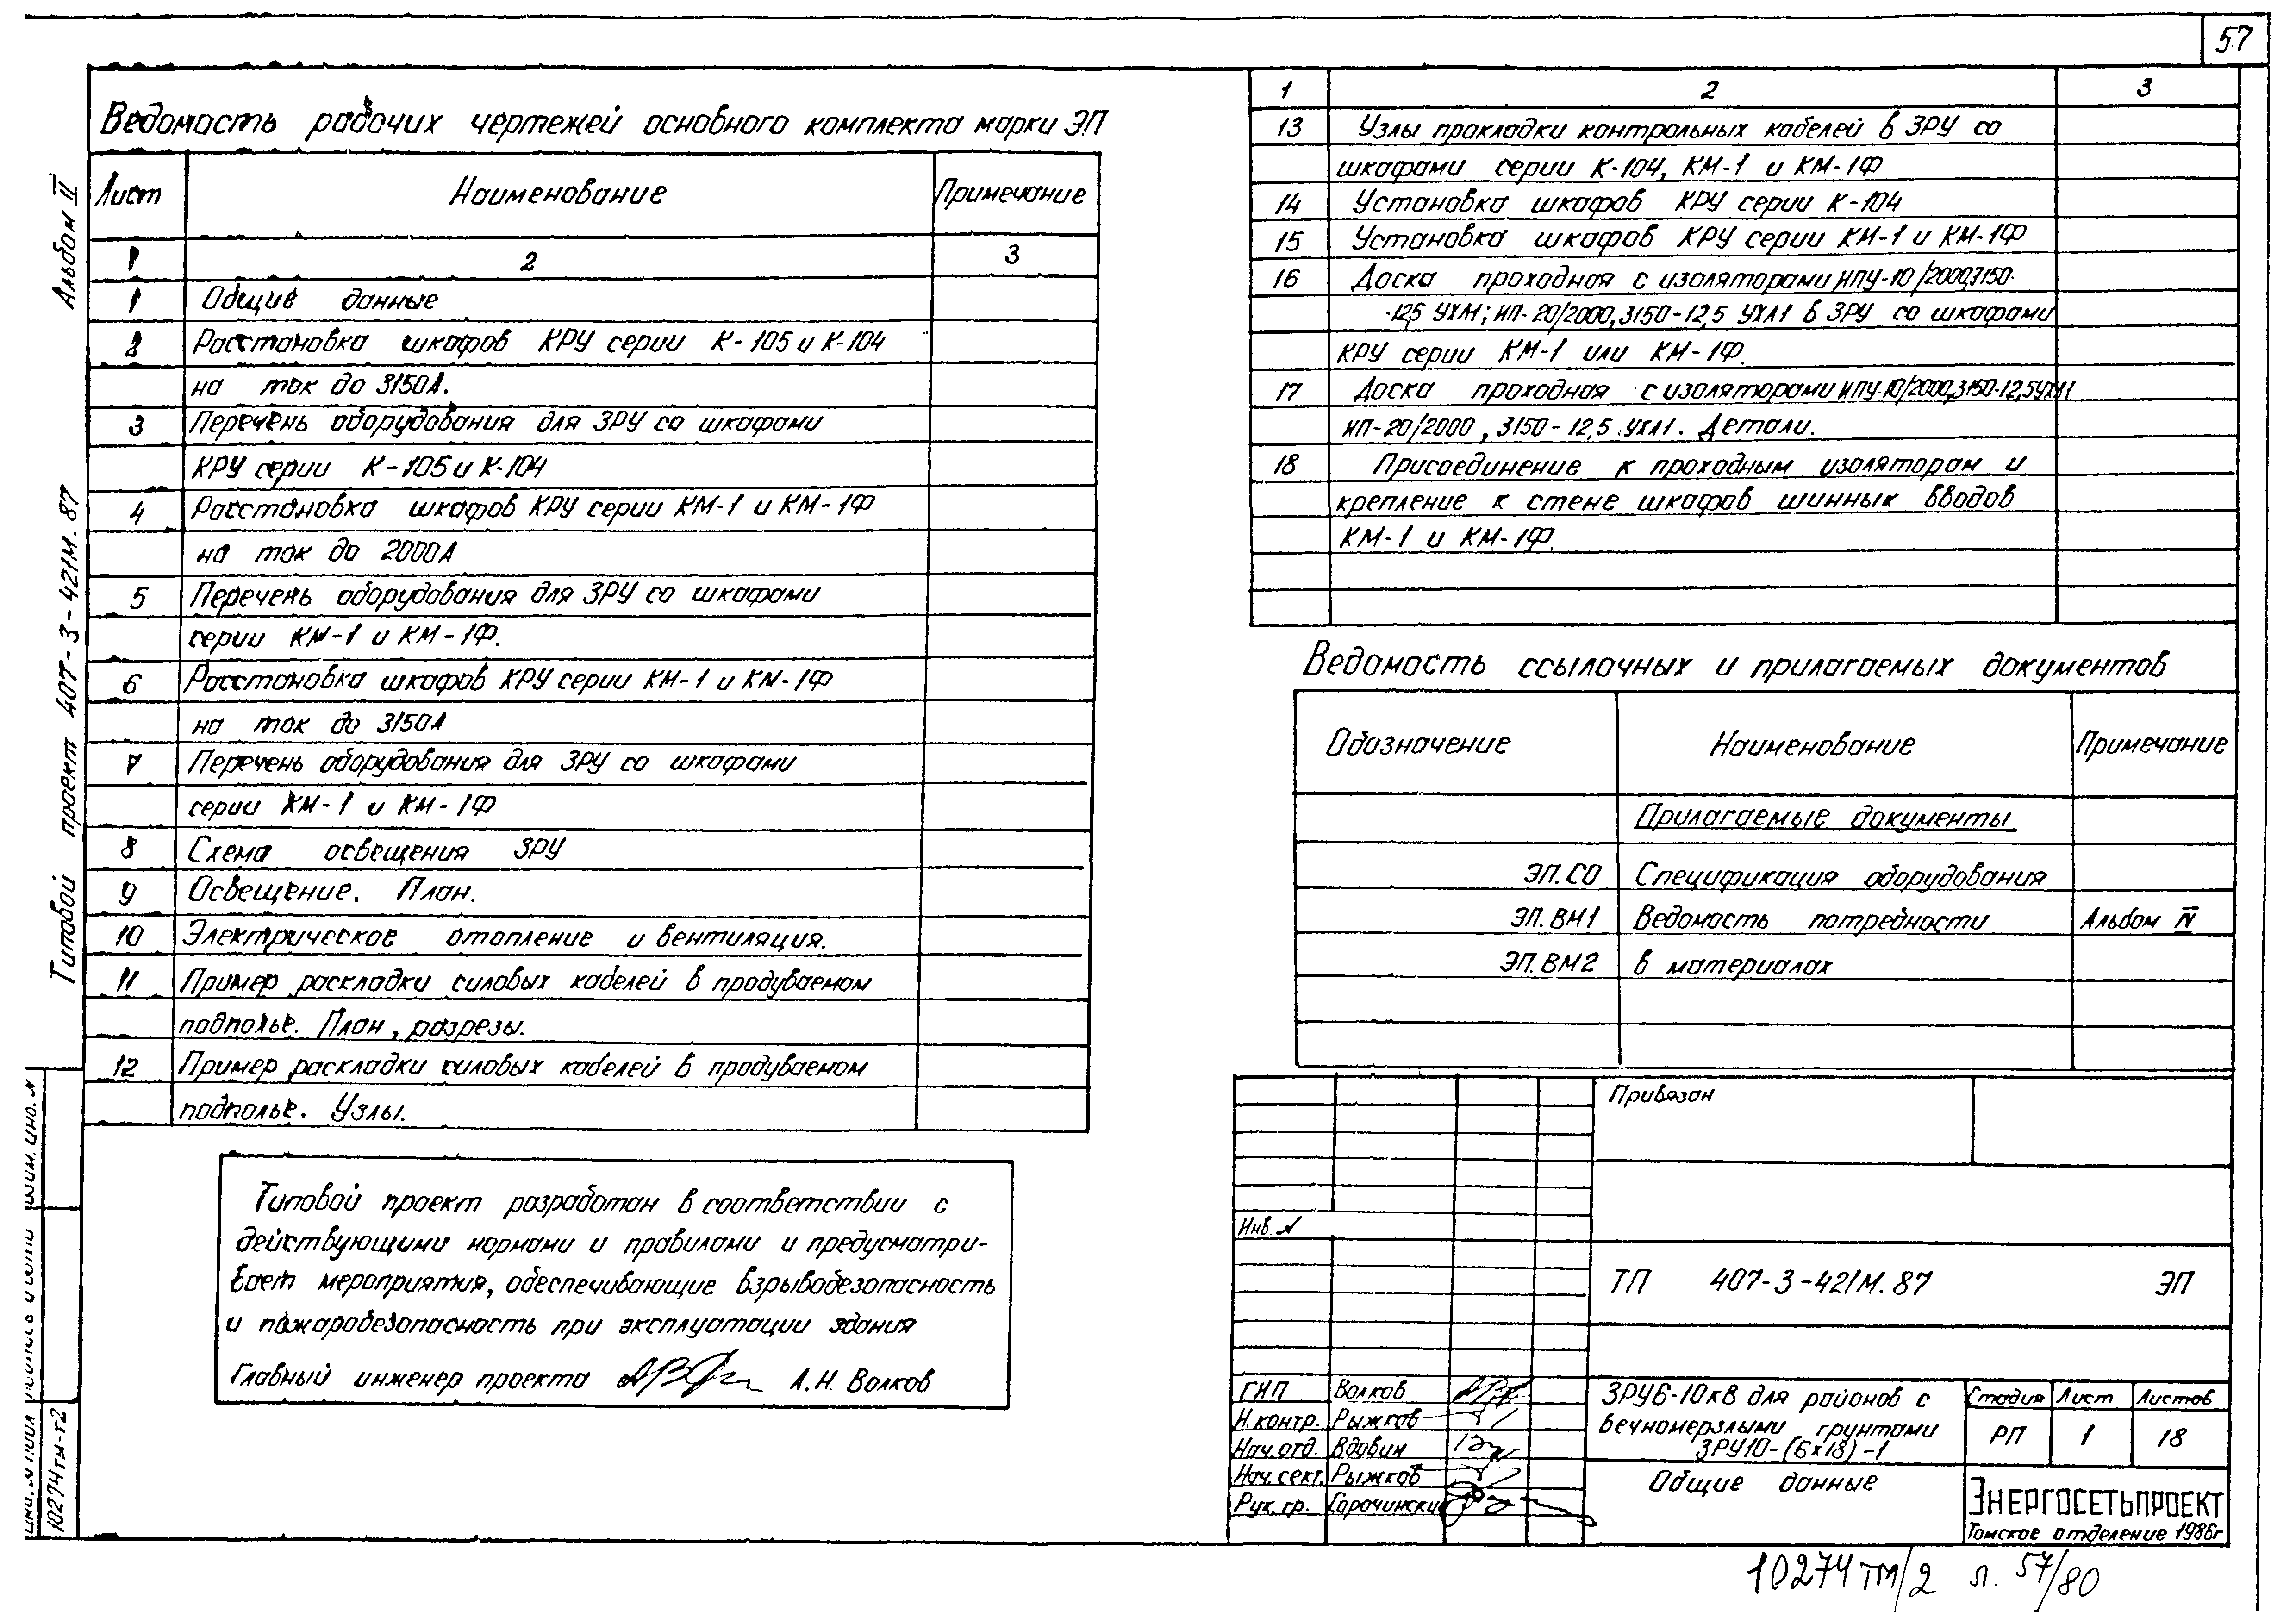 57
Альбом II
Типовой проект 407-3-421М.87
Ведомость рабочих чертежей основного комплекта марки ЭП
Лист Наименование Примечание
1 2 3
1 Общие данные
2 Расстановка шкафов КРУ серии К-105 и К-104
на ток до 3150А.
3 Перечень оборудования для ЗРУ со шкафами
КРУ серии К-105 и К-104
4 Расстановка шкафов КРУ серии КМ-1 и КМ-1Ф
на ток до 2000А
5 Перечень оборудования для ЗРУ со шкафами
серии КМ-1 и КМ-1Ф.
6 Расстановка шкафов КРУ серии КМ-1 и КМ-1Ф
на ток до 3150А
7 Перечень оборудования для ЗРУ со шкафами
серии КМ-1 и КМ-1Ф
8 Схема освещения ЗРУ
9 Освещение. План.
10 Электрическое отопление и вентиляция.
11 Пример раскладки силовых кабелей в продуваемом
подполье. План, разрезы.
12 Пример раскладки силовых кабелей в продуваемом
подполье. Узлы.
Типовой проект разработан в соответствии с
действующими нормами и правилами и предусматри-
вает мероприятия, обеспечивающие взрывобезопасность
и пожаробезопасность при эксплуатации здания
Главный инженер проекта А.Н. Волков
1 2 3
13 Узлы прокладки контрольных кабелей в ЗРУ со
шкафами серии К-104, КМ-1 и КМ-1Ф
14 Установка шкафов КРУ серии К-104
15 Установка шкафов КРУ серии КМ-1 и КМ-1Ф
16 Доска проходная с изоляторами ИПУ-10/2000,3150-
-12,5 УХЛ1; ИП-20/2000,3150-12,5 УХЛ1 в ЗРУ со шкафами
КРУ серии КМ-1 или КМ-1Ф.
17 Доска проходная с изоляторами ИПУ-10/2000,3150-12,5УХЛ1
ИП-20/2000, 3150-12,5 УХЛ1. Детали.
18 Присоединение к проходным изоляторам и
крепление к стене шкафов шинных вводов
КМ-1 и КМ-1Ф.
Ведомость ссылочных и прилагаемых документов
Обозначение Наименование Примечание
Прилагаемые документы
ЭП.СО Спецификация оборудования
ЭП.ВМ1 Ведомость потребности Альбом IV
ЭП.ВМ2 в материалах
Привязан
Инв.N
ТП 407-3-421М.87 ЭП
ГИП Волков
Н.контр. Рыжков
Нач.отд. Вдовин
Нач.сект. Рыжков
Рук.гр. Горочински
ЗРУ6-10кВ для районов с
вечномерзлыми грунтами
ЗРУ10-(6х18)-1
Стадия Лист Листов
РП 1 18
Общие данные
ЭНЕРГОСЕТЬПРОЕКТ
Томское отделение 1986г
взам. инв. N
10274тм-т2
10274тм/2 л. 57/80